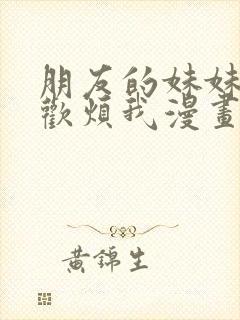 朋友的妹妹
歡煩我漫畫
黃錦生